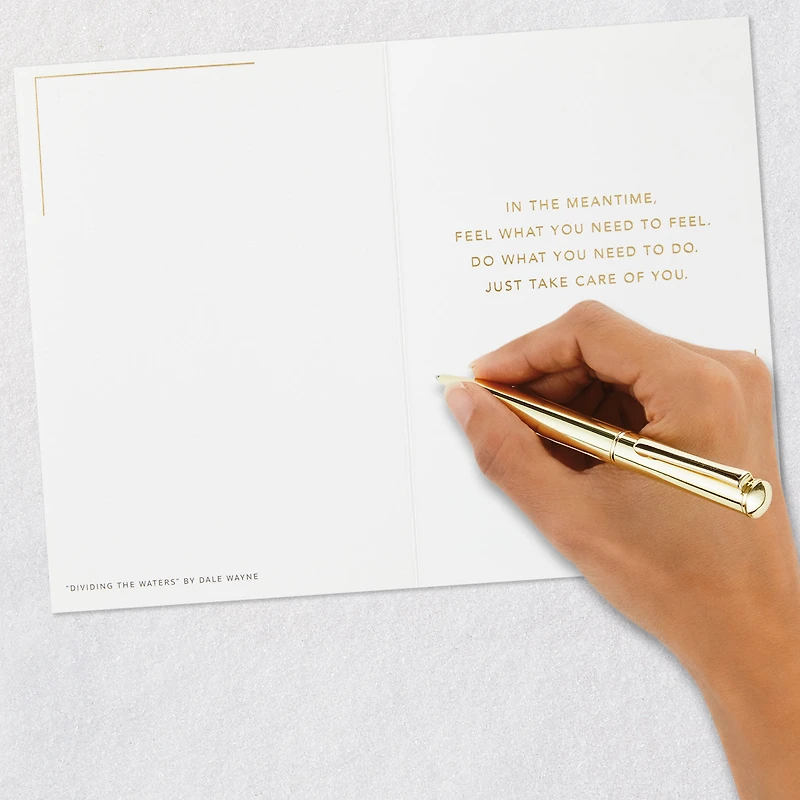 IN THE MEANTIME,
FEEL WHAT YOU NEED TO FEEL.
DO WHAT YOU NEED TO DO.
JUST TAKE CARE OF YOU.
"DIVIDING THE WATERS" BY DALE WAYNE